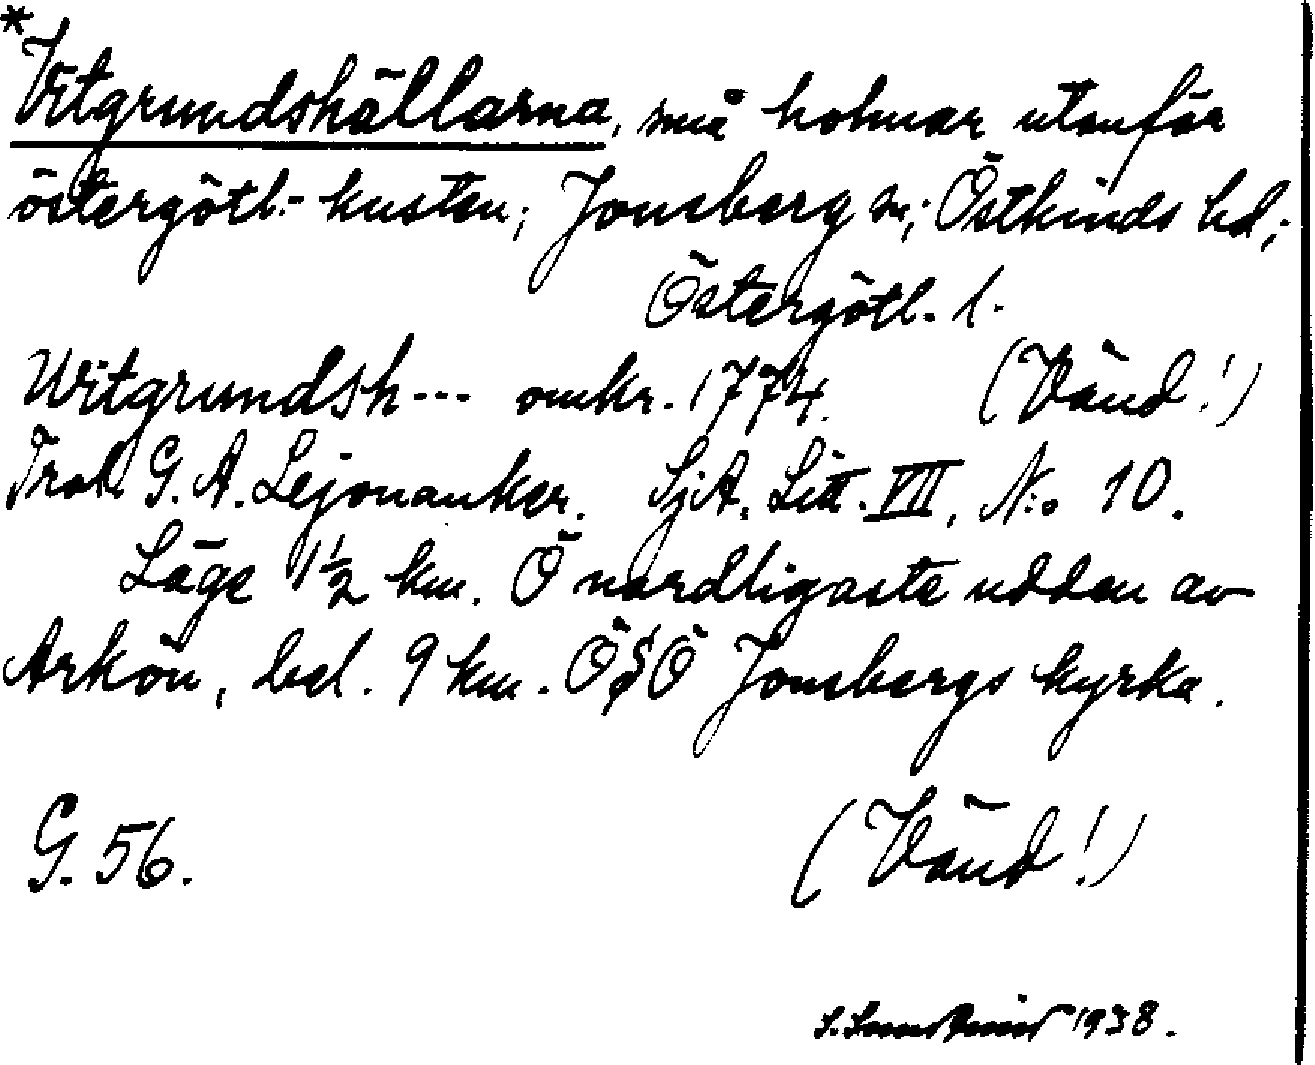 *Vitgrundshällarna, små holmar utanför
östergötl.-kusten; Jonsberg sn; Östkinds hd;
Östergötl. l.
Witgrundsh--- omkr. 1774. (Vänd!)
G. A. Lejonanker. SjA, Litt. VII, N:o 10.
Läge 1½ km. Ö nordligaste udden av
Arkön, bel. 9 km. ÖSÖ Jonsbergs kyrka.
G. 56. (Vänd!)
1938.